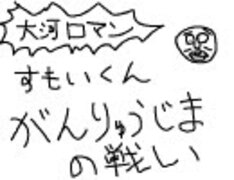 大河ロマン
すもいくん
がんりゅうじま
の戦しい